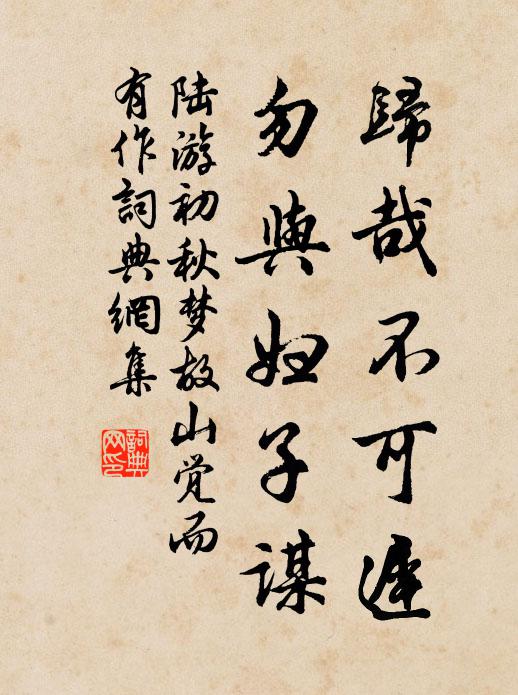 歸哉不可遲
勿與妇子謀
陆游初秋梦故山觉而
有作詞典網集
詞典
网印